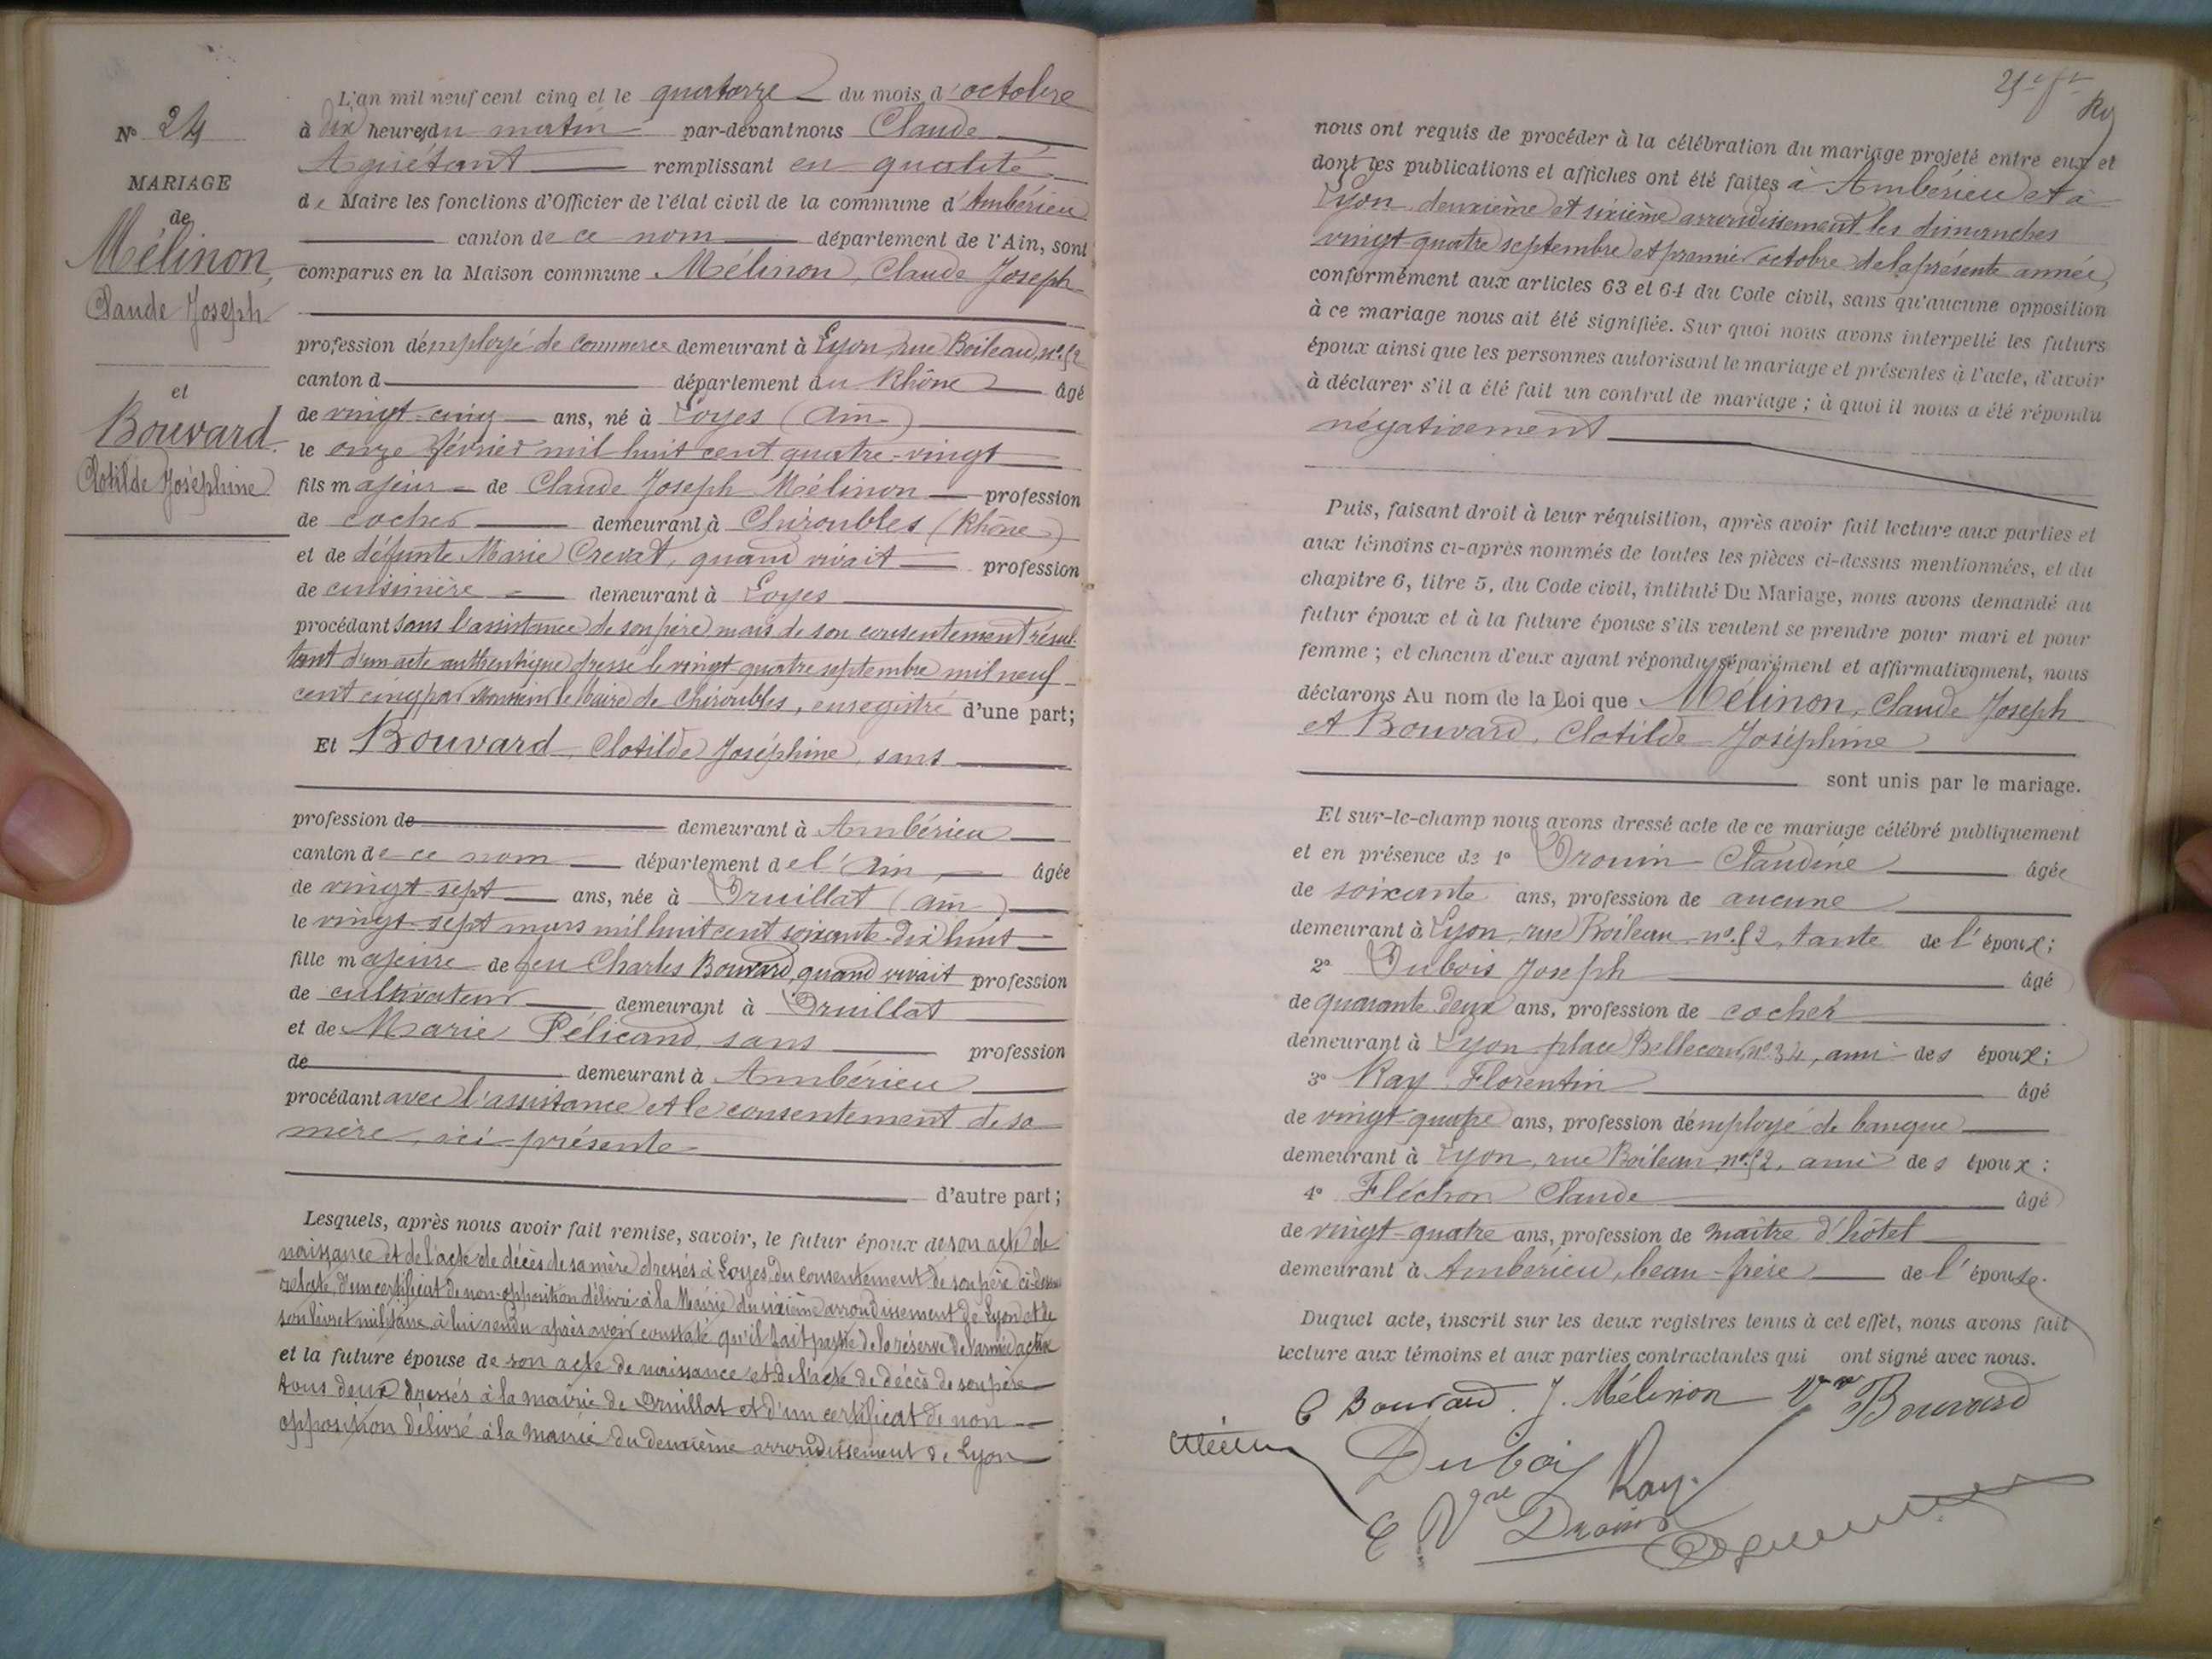 N° 24
MARIAGE
de
Mélinon,
Claude Joseph
et
Bouvard
Clotilde Joséphine
L'an mil neuf cent cinq et le quatorze du mois d'octobre
à dix heures du matin par-devant nous Claude
Aguétant remplissant en qualité
de Maire les fonctions d'Officier de l'état civil de la commune d'Ambérieu
canton de ce nom département de l'Ain, sont
comparus en la Maison commune Mélinon, Claude Joseph
profession d'employé de commerce demeurant à Lyon, rue Boileau, n°
canton d département du Rhône âgé
de vingt-cinq ans, né à Loyes (Ain)
le onze février mil huit cent quatre-vingt
fils majeur de Claude Joseph Mélinon profession
de cocher demeurant à Chiroubles (Rhône)
et de défunte Marie Crevat, quand vivait profession
de cuisinière demeurant à Loyes
procédant sans l'assistance de son père mais de son consentement résul-
tant d'un acte authentique dressé le vingt-quatre septembre mil neuf
cent cinq par Monsieur le Maire de Chiroubles, enregistré d'une part;
Et Bouvard, Clotilde Joséphine, sans
profession de demeurant à Ambérieu
canton de ce nom département de l'Ain, âgée
de vingt-sept ans, née à Druillat (Ain)
le vingt-sept mars mil huit cent soixante-dix huit
fille majeure de feu Charles Bouvard, quand vivait profession
de cultivateur demeurant à Druillat
et de Marie Pélicand, sans profession
de demeurant à Ambérieu
procédant avec l'assistance et le consentement de sa
mère, ici présente
d'autre part;
Lesquels, après nous avoir fait remise, savoir, le futur époux de son acte de
naissance et de l'acte de décès de sa mère dressés à Loyes, du consentement de son père ci-dessus
relaté, d'un certificat de non-opposition délivré à la Mairie du sixième arrondissement de Lyon et de
son livret militaire à lui rendu après avoir constaté qu'il fait partie de la réserve de l'armée active
et la future épouse de son acte de naissance et de l'acte de décès de son père
tous deux dressés à la mairie de Druillat et d'un certificat de non-
opposition délivré à la mairie du deuxième arrondissement de Lyon
nous ont requis de procéder à la célébration du mariage projeté entre eux et
dont les publications et affiches ont été faites à Ambérieu et à
Lyon, deuxième et sixième arrondissement les dimanches
vingt-quatre septembre et premier octobre de la présente année,
conformément aux articles 63 et 64 du Code civil, sans qu'aucune opposition
à ce mariage nous ait été signifiée. Sur quoi nous avons interpellé les futurs
époux ainsi que les personnes autorisant le mariage et présentes à l'acte, d'avoir
à déclarer s'il a été fait un contrat de mariage; à quoi il nous a été répondu
négativement
Puis, faisant droit à leur réquisition, après avoir fait lecture aux parties et
aux témoins ci-après nommés de toutes les pièces ci-dessus mentionnées, et du
chapitre 6, titre 5, du Code civil, intitulé Du Mariage, nous avons demandé au
futur époux et à la future épouse s'ils veulent se prendre pour mari et pour
femme; et chacun d'eux ayant répondu séparément et affirmativement, nous
déclarons Au nom de la Loi que Mélinon, Claude Joseph
et Bouvard, Clotilde Joséphine
sont unis par le mariage.
Et sur-le-champ nous avons dressé acte de ce mariage célébré publiquement
et en présence de 1° Drouin Claudine âgée
de soixante ans, profession de aucune
demeurant à Lyon, rue Boileau n°, tante de l'époux;
2° Dubois Joseph âgé
de quarante deux ans, profession de cocher
demeurant à Lyon place Bellecour, n°, ami des époux;
3° Ray Florentin âgé
de vingt-quatre ans, profession d'employé de banque
demeurant à Lyon, rue Boileau, n°, ami des époux;
4° Fléchon Claude âgé
de vingt-quatre ans, profession de maître d'hôtel
demeurant à Ambérieu, beau-frère de l'épouse.
Duquel acte, inscrit sur les deux registres tenus à cet effet, nous avons fait
lecture aux témoins et aux parties contractantes qui ont signé avec nous.
C Bouvard. J. Mélinon Vve Bouvard
Dubois Ray.
Vve Drouin